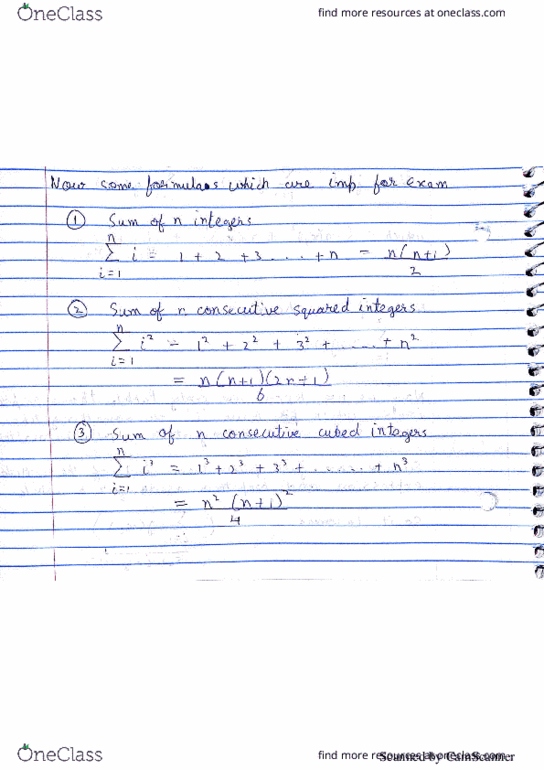 OneClass
find more resources at oneclass.com
Now some formulaos which are imp for exam
① Sum of n integers
n
∑ i = 1 + 2 + 3 . . . . + n = n(n+1)
i=1 2
② Sum of n consecutive squared integers
n
∑ i² = 1² + 2² + 3² + . . . . . + n²
i=1
= n(n+1)(2n+1)
6
③ Sum of n consecutive cubed integers
n
∑ i³ = 1³ + 2³ + 3³ + . . . . . . + n³
i=1
= n² (n+1)²
4
OneClass
find more resources at oneclass.com
Scanned by CamScanner